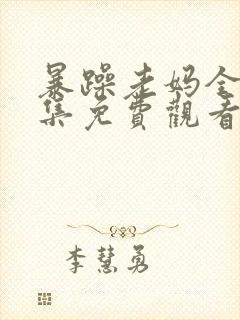 暴躁老妈全
集免費觀看
李慧勇